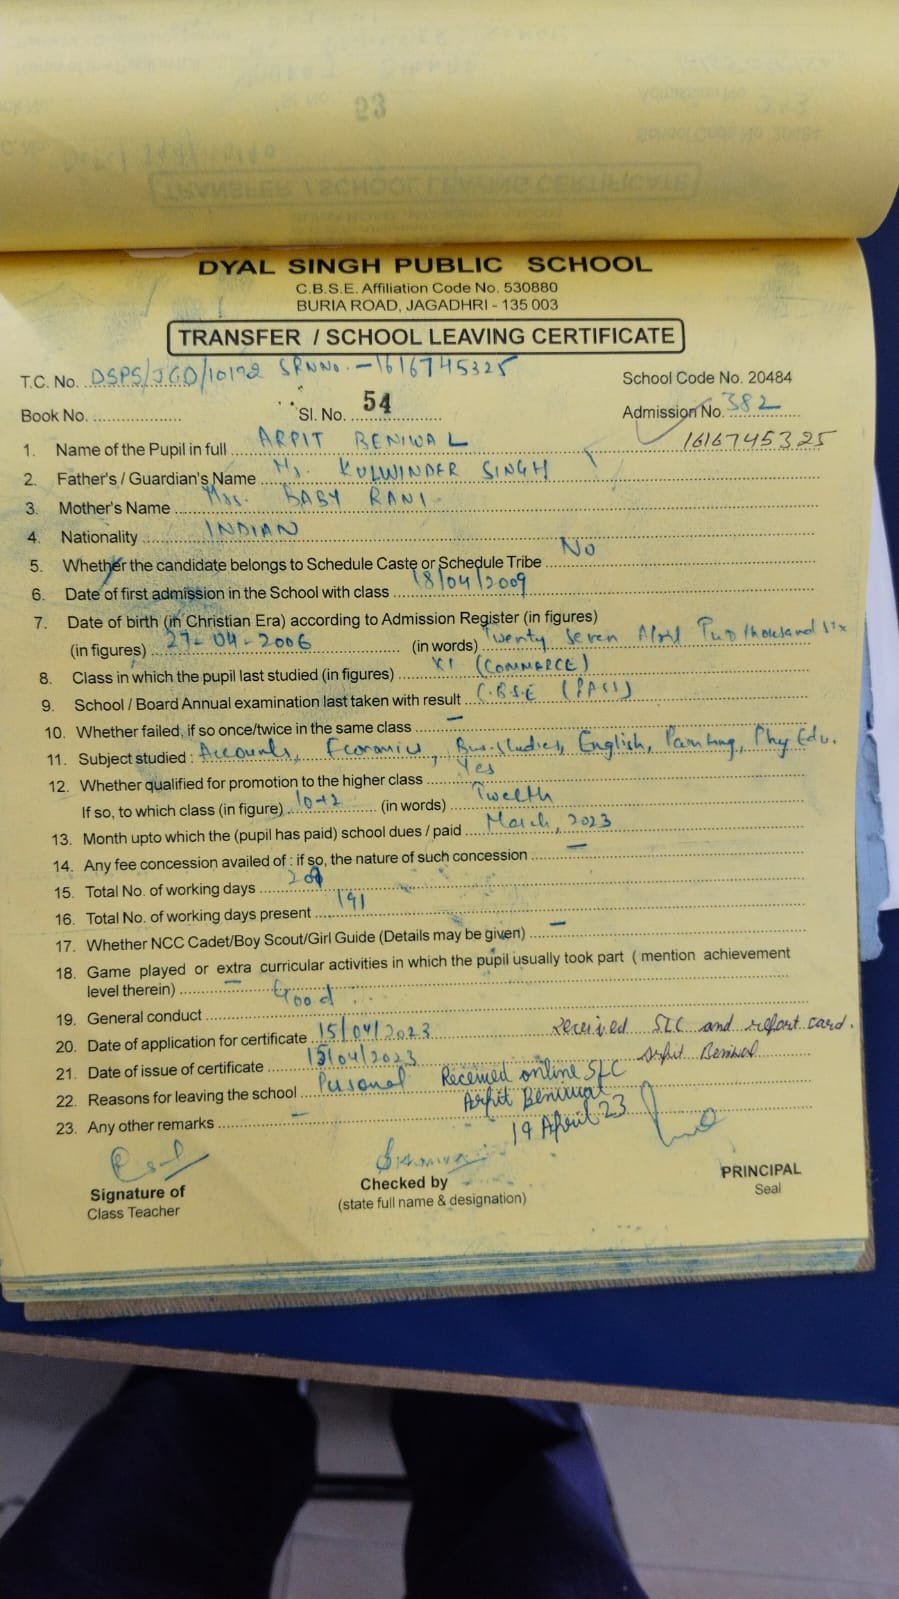 DYAL SINGH PUBLIC SCHOOL
C.B.S.E. Affiliation Code No. 530880
BURIA ROAD, JAGADHRI - 135 003
TRANSFER / SCHOOL LEAVING CERTIFICATE
T.C. No. DSPS/JGD/10192 SRNNo. - 1616745325 School Code No. 20484
Book No. Sl. No. 54 Admission No. 382
1. Name of the Pupil in full ARPIT BENIWAL 1616745325
2. Father's / Guardian's Name Mr. KULWINDER SINGH
3. Mother's Name Mrs. BABY RANI
4. Nationality INDIAN
5. Whether the candidate belongs to Schedule Caste or Schedule Tribe No
6. Date of first admission in the School with class 18/04/2009
7. Date of birth (in Christian Era) according to Admission Register (in figures)
(in figures) 27-04-2006 (in words) Twenty Seven April Two thousand six
8. Class in which the pupil last studied (in figures) XI (COMMERCE)
9. School / Board Annual examination last taken with result C.B.S.E (PASS)
10. Whether failed, if so once/twice in the same class —
11. Subject studied : Accounts, Economics, Bus. Studies, English, Painting, Phy Edu.
12. Whether qualified for promotion to the higher class Yes
If so, to which class (in figure) 10+2 (in words) Twelth
13. Month upto which the (pupil has paid) school dues / paid March, 2023
14. Any fee concession availed of : if so, the nature of such concession —
15. Total No. of working days
16. Total No. of working days present 191
17. Whether NCC Cadet/Boy Scout/Girl Guide (Details may be given) —
18. Game played or extra curricular activities in which the pupil usually took part ( mention achievement
level therein) —
19. General conduct Good
20. Date of application for certificate 15/04/2023 received SLC and report card.
21. Date of issue of certificate 15/04/2023 Arpit Beniwal
22. Reasons for leaving the school Personal Received online SLC
Arpit Beniwal
23. Any other remarks — 19 April 23
Signature of Checked by PRINCIPAL
Class Teacher (state full name & designation) Seal